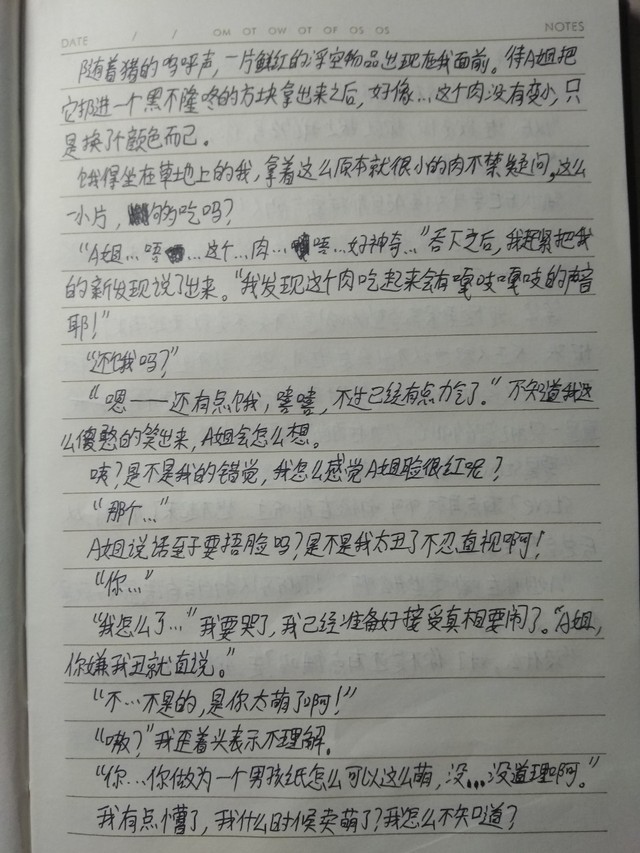 DATE / / OM OT OW OT OF OS OS NOTES
随着猪的呜呼声，一片鲜红的浮空物品出现在我面前。待A姐把
它扔进一个黑不隆咚的方块拿出来之后，好像…这个肉没有变小，只
是换了个颜色而已。
饿得坐在草地上的我，拿着这么原本就很小的肉不禁疑问，这么
一小片，够吃吗？
“A姐…唔…这个…肉…唔…好神奇…”吞下之后，我赶紧把我
的新发现说了出来。“我发现这个肉吃起来会有嘎吱嘎吱的声音
耶！”
“还饿吗？”
“嗯——还有点饿，嘻嘻，不过已经有点力气了。”不知道我这
么傻憨的笑出来，A姐会怎么想。
咦？是不是我的错觉，我怎么感觉A姐脸很红呢？
“那个…”
A姐说话至于要捂脸吗？是不是我太丑了不忍直视啊！
“你…”
“我怎么了…”我要哭了，我已经准备好接受真相要闹了。“A姐，
你嫌我丑就直说。”
“不…不是的，是你太萌了啊！”
“嗷？”我歪着头表示不理解。
“你…你做为一个男孩纸怎么可以这么萌，没…没道理啊。”
我有点懵了，我什么时候卖萌了？我怎么不知道？